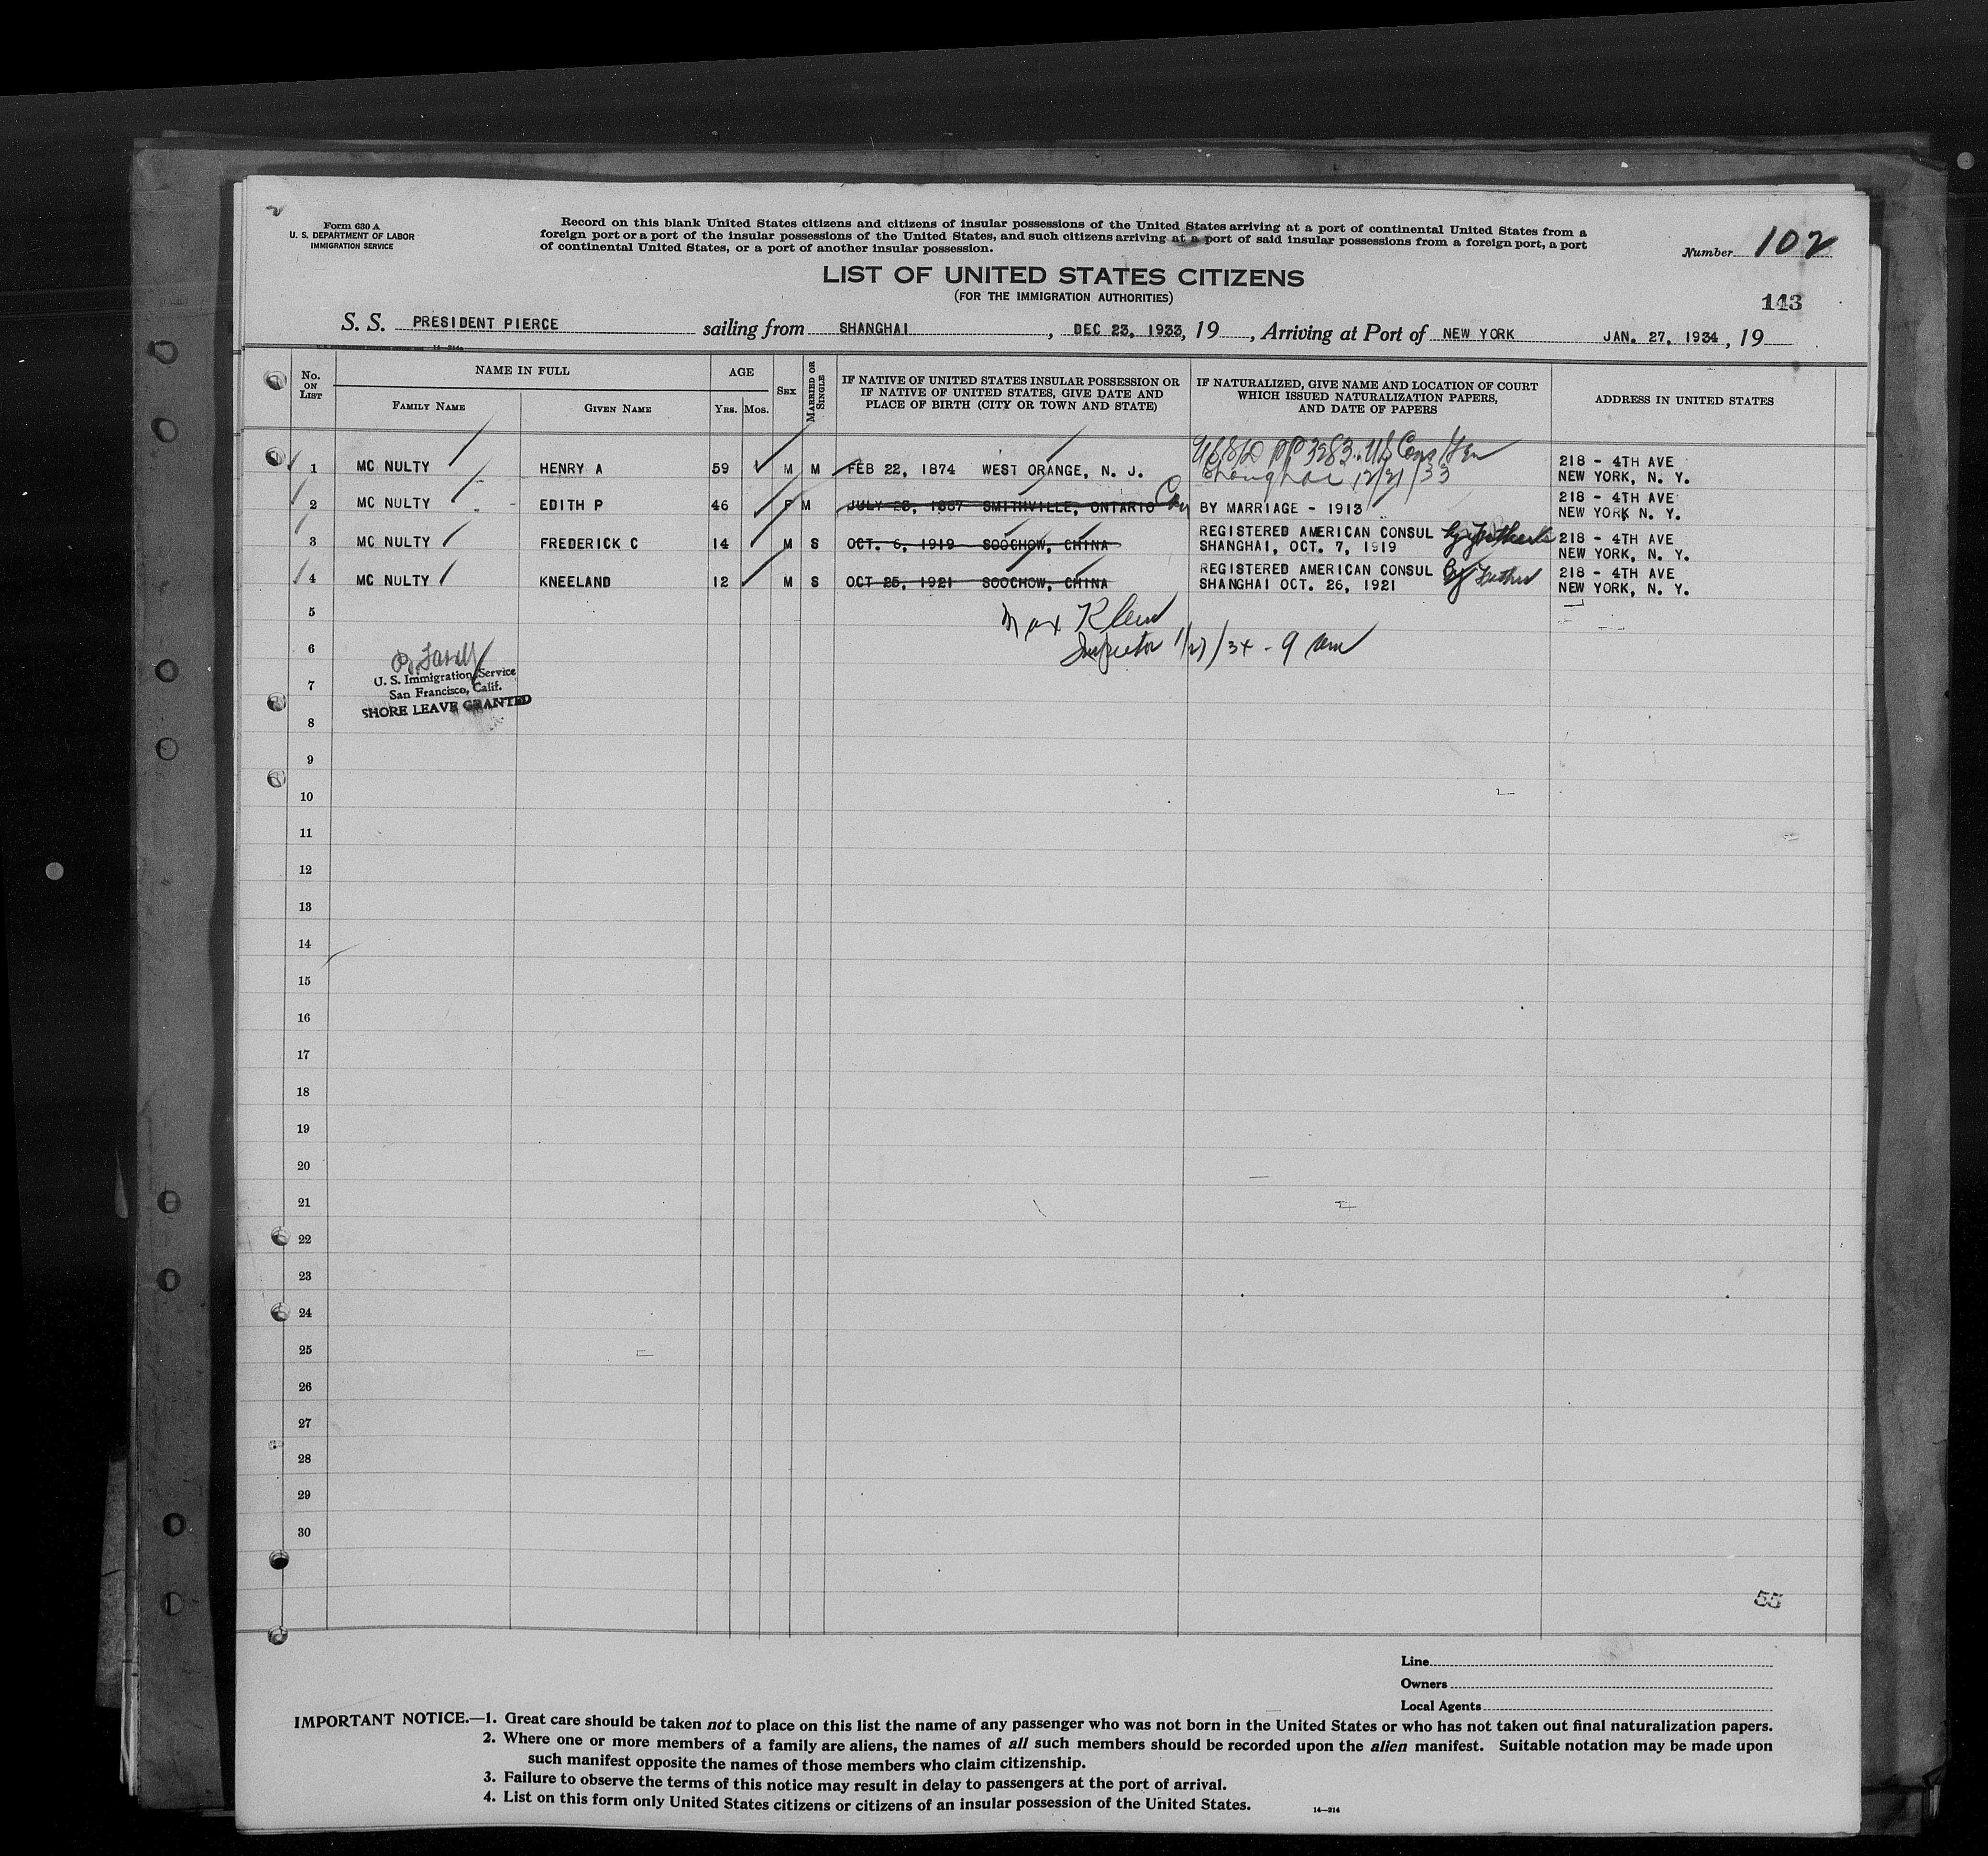 Form 630 A
U. S. DEPARTMENT OF LABOR
IMMIGRATION SERVICE
Record on this blank United States citizens and citizens of insular possessions of the United States arriving at a port of continental United States from a
foreign port or a port of the insular possessions of the United States, and such citizens arriving at a port of said insular possessions from a foreign port, a port
of continental United States, or a port of another insular possession.
Number 102
LIST OF UNITED STATES CITIZENS
(FOR THE IMMIGRATION AUTHORITIES)
143
S. S. PRESIDENT PIERCE sailing from SHANGHAI, DEC 23, 1933, 19, Arriving at Port of NEW YORK JAN. 27, 1934, 19
No. ON LIST
NAME IN FULL
FAMILY NAME
GIVEN NAME
AGE
YRS. MOS.
SEX
MARRIED OR SINGLE
IF NATIVE OF UNITED STATES INSULAR POSSESSION OR
IF NATIVE OF UNITED STATES, GIVE DATE AND
PLACE OF BIRTH (CITY OR TOWN AND STATE)
IF NATURALIZED, GIVE NAME AND LOCATION OF COURT
WHICH ISSUED NATURALIZATION PAPERS,
AND DATE OF PAPERS
ADDRESS IN UNITED STATES
1 MC NULTY HENRY A 59 M M FEB 22, 1874 WEST ORANGE, N. J. PP 3283 US Cons Gen
Shanghai 12/21/33
218 - 4TH AVE
NEW YORK, N. Y.
2 MC NULTY EDITH P 46 F M JULY 25, 1887 SMITHVILLE, ONTARIO Can BY MARRIAGE - 1913
218 - 4TH AVE
NEW YORK N. Y.
3 MC NULTY FREDERICK C 14 M S OCT. 6, 1919 SOOCHOW, CHINA REGISTERED AMERICAN CONSUL
SHANGHAI, OCT. 7, 1919
218 - 4TH AVE
NEW YORK, N. Y.
4 MC NULTY KNEELAND 12 M S OCT 25, 1921 SOOCHOW, CHINA REGISTERED AMERICAN CONSUL By Father
SHANGHAI OCT. 26, 1921
218 - 4TH AVE
NEW YORK, N. Y.
5
Max Klein
6
Inspector 1/27/34 - 9 am
U. S. Immigration Service
San Francisco, Calif.
SHORE LEAVE GRANTED
7
8
9
10
11
12
13
14
15
16
17
18
19
20
21
22
23
24
25
26
27
28
29
30
55
Line
Owners
Local Agents
IMPORTANT NOTICE.—1. Great care should be taken not to place on this list the name of any passenger who was not born in the United States or who has not taken out final naturalization papers.
2. Where one or more members of a family are aliens, the names of all such members should be recorded upon the alien manifest. Suitable notation may be made upon
such manifest opposite the names of those members who claim citizenship.
3. Failure to observe the terms of this notice may result in delay to passengers at the port of arrival.
4. List on this form only United States citizens or citizens of an insular possession of the United States.
14—214